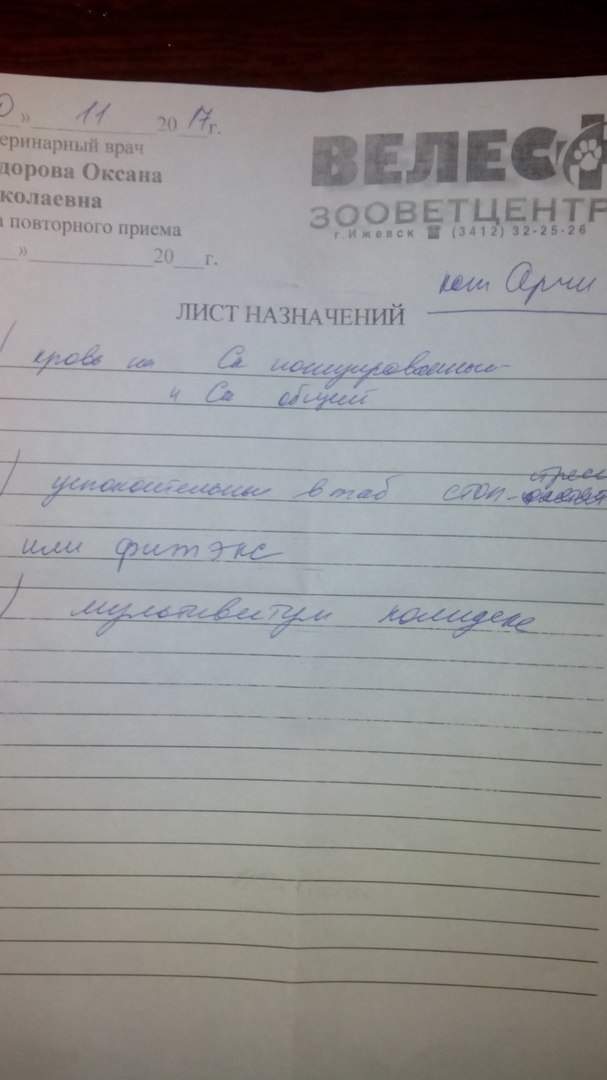 » 11 2017г.
еринарный врач
дорова Оксана
колаевна
а повторного приема
» 20 г.
ВЕЛЕС
ЗООВЕТЦЕНТР
г.Ижевск ☎ (3412) 32-25-26
кот Арчи
ЛИСТ НАЗНАЧЕНИЙ
) кровь на Ca ионизированный
и Ca общий
) успокоительные в таб СТОП-стресс
или фитэкс
) мультивитум полидекс